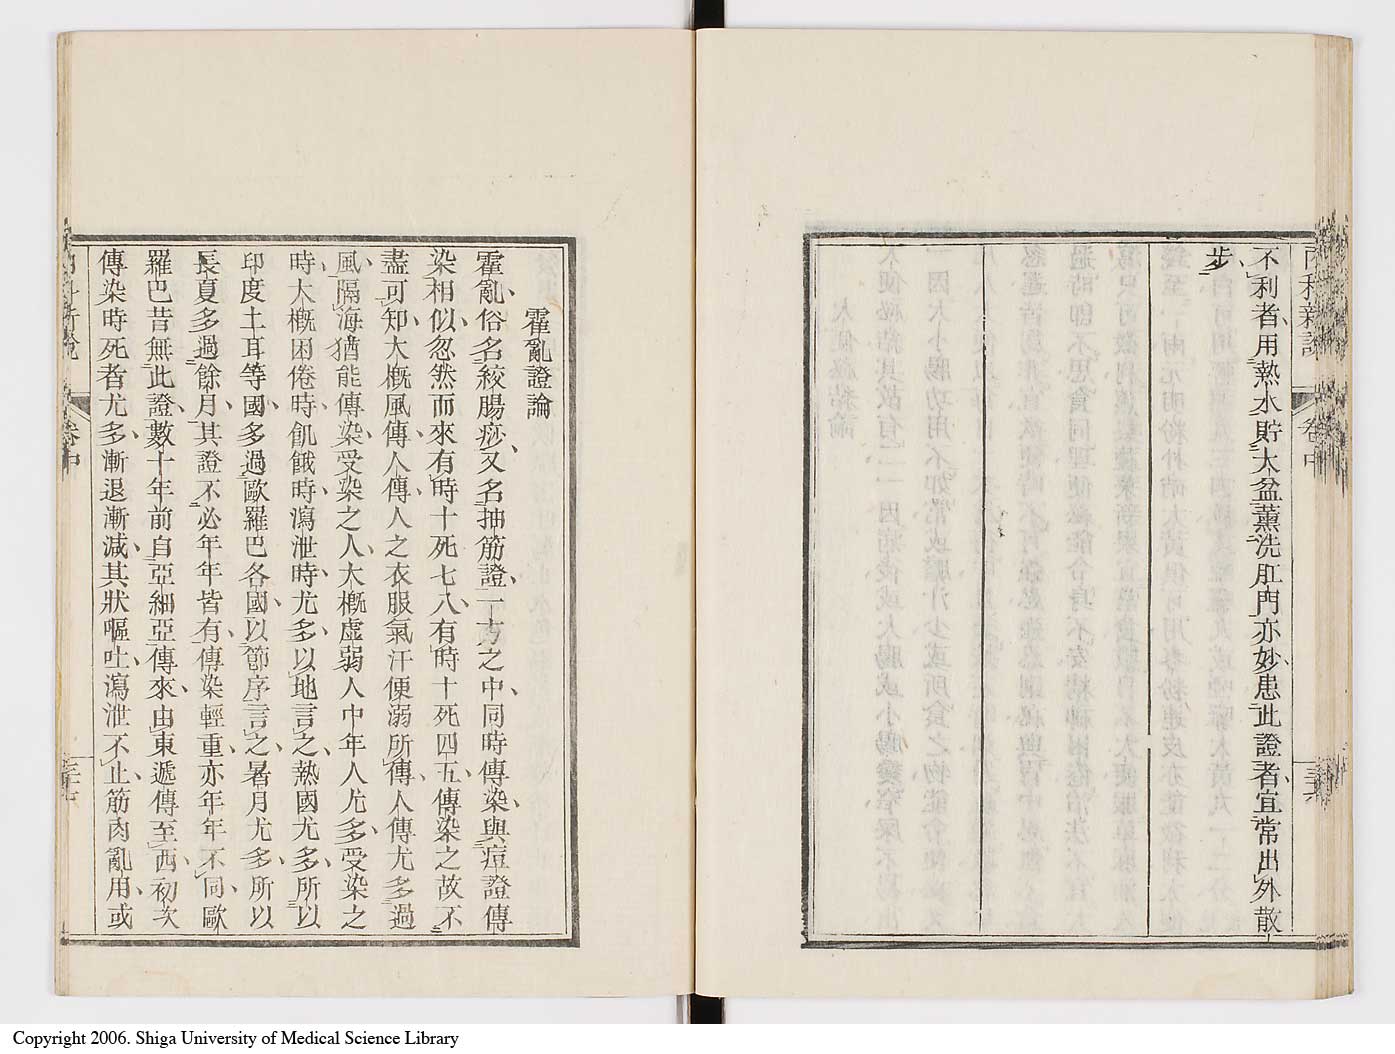 內科新說
卷中
三十六
不利者用熱水貯大盆薰洗肛門亦妙患此證者宜常出外散
步
霍亂證論
霍亂俗名絞腸痧又名抽筋證一方之中同時傳染與痘證傳
染相似忽然而來有時十死七八有時十死四五傳染之故不
盡可知大概風傳人傳人之衣服氣汗便溺所傳人傳尤多過
風隔海猶能傳染受染之人大概虛弱人中年人尤多受染之
時大概困倦時飢餓時瀉泄時尤多以地言之熱國尤多所以
印度土耳等國多過歐羅巴各國以節序言之暑月尤多所以
長夏多過餘月其證不必年年皆有傳染輕重亦年年不同歐
羅巴昔無此證數十年前自亞細亞傳來由東遞傳至西初次
傳染時死者尤多漸退漸減其狀嘔吐瀉泄不止筋肉亂用或
內科新說
卷中
三十七
Copyright 2006. Shiga University of Medical Science Library